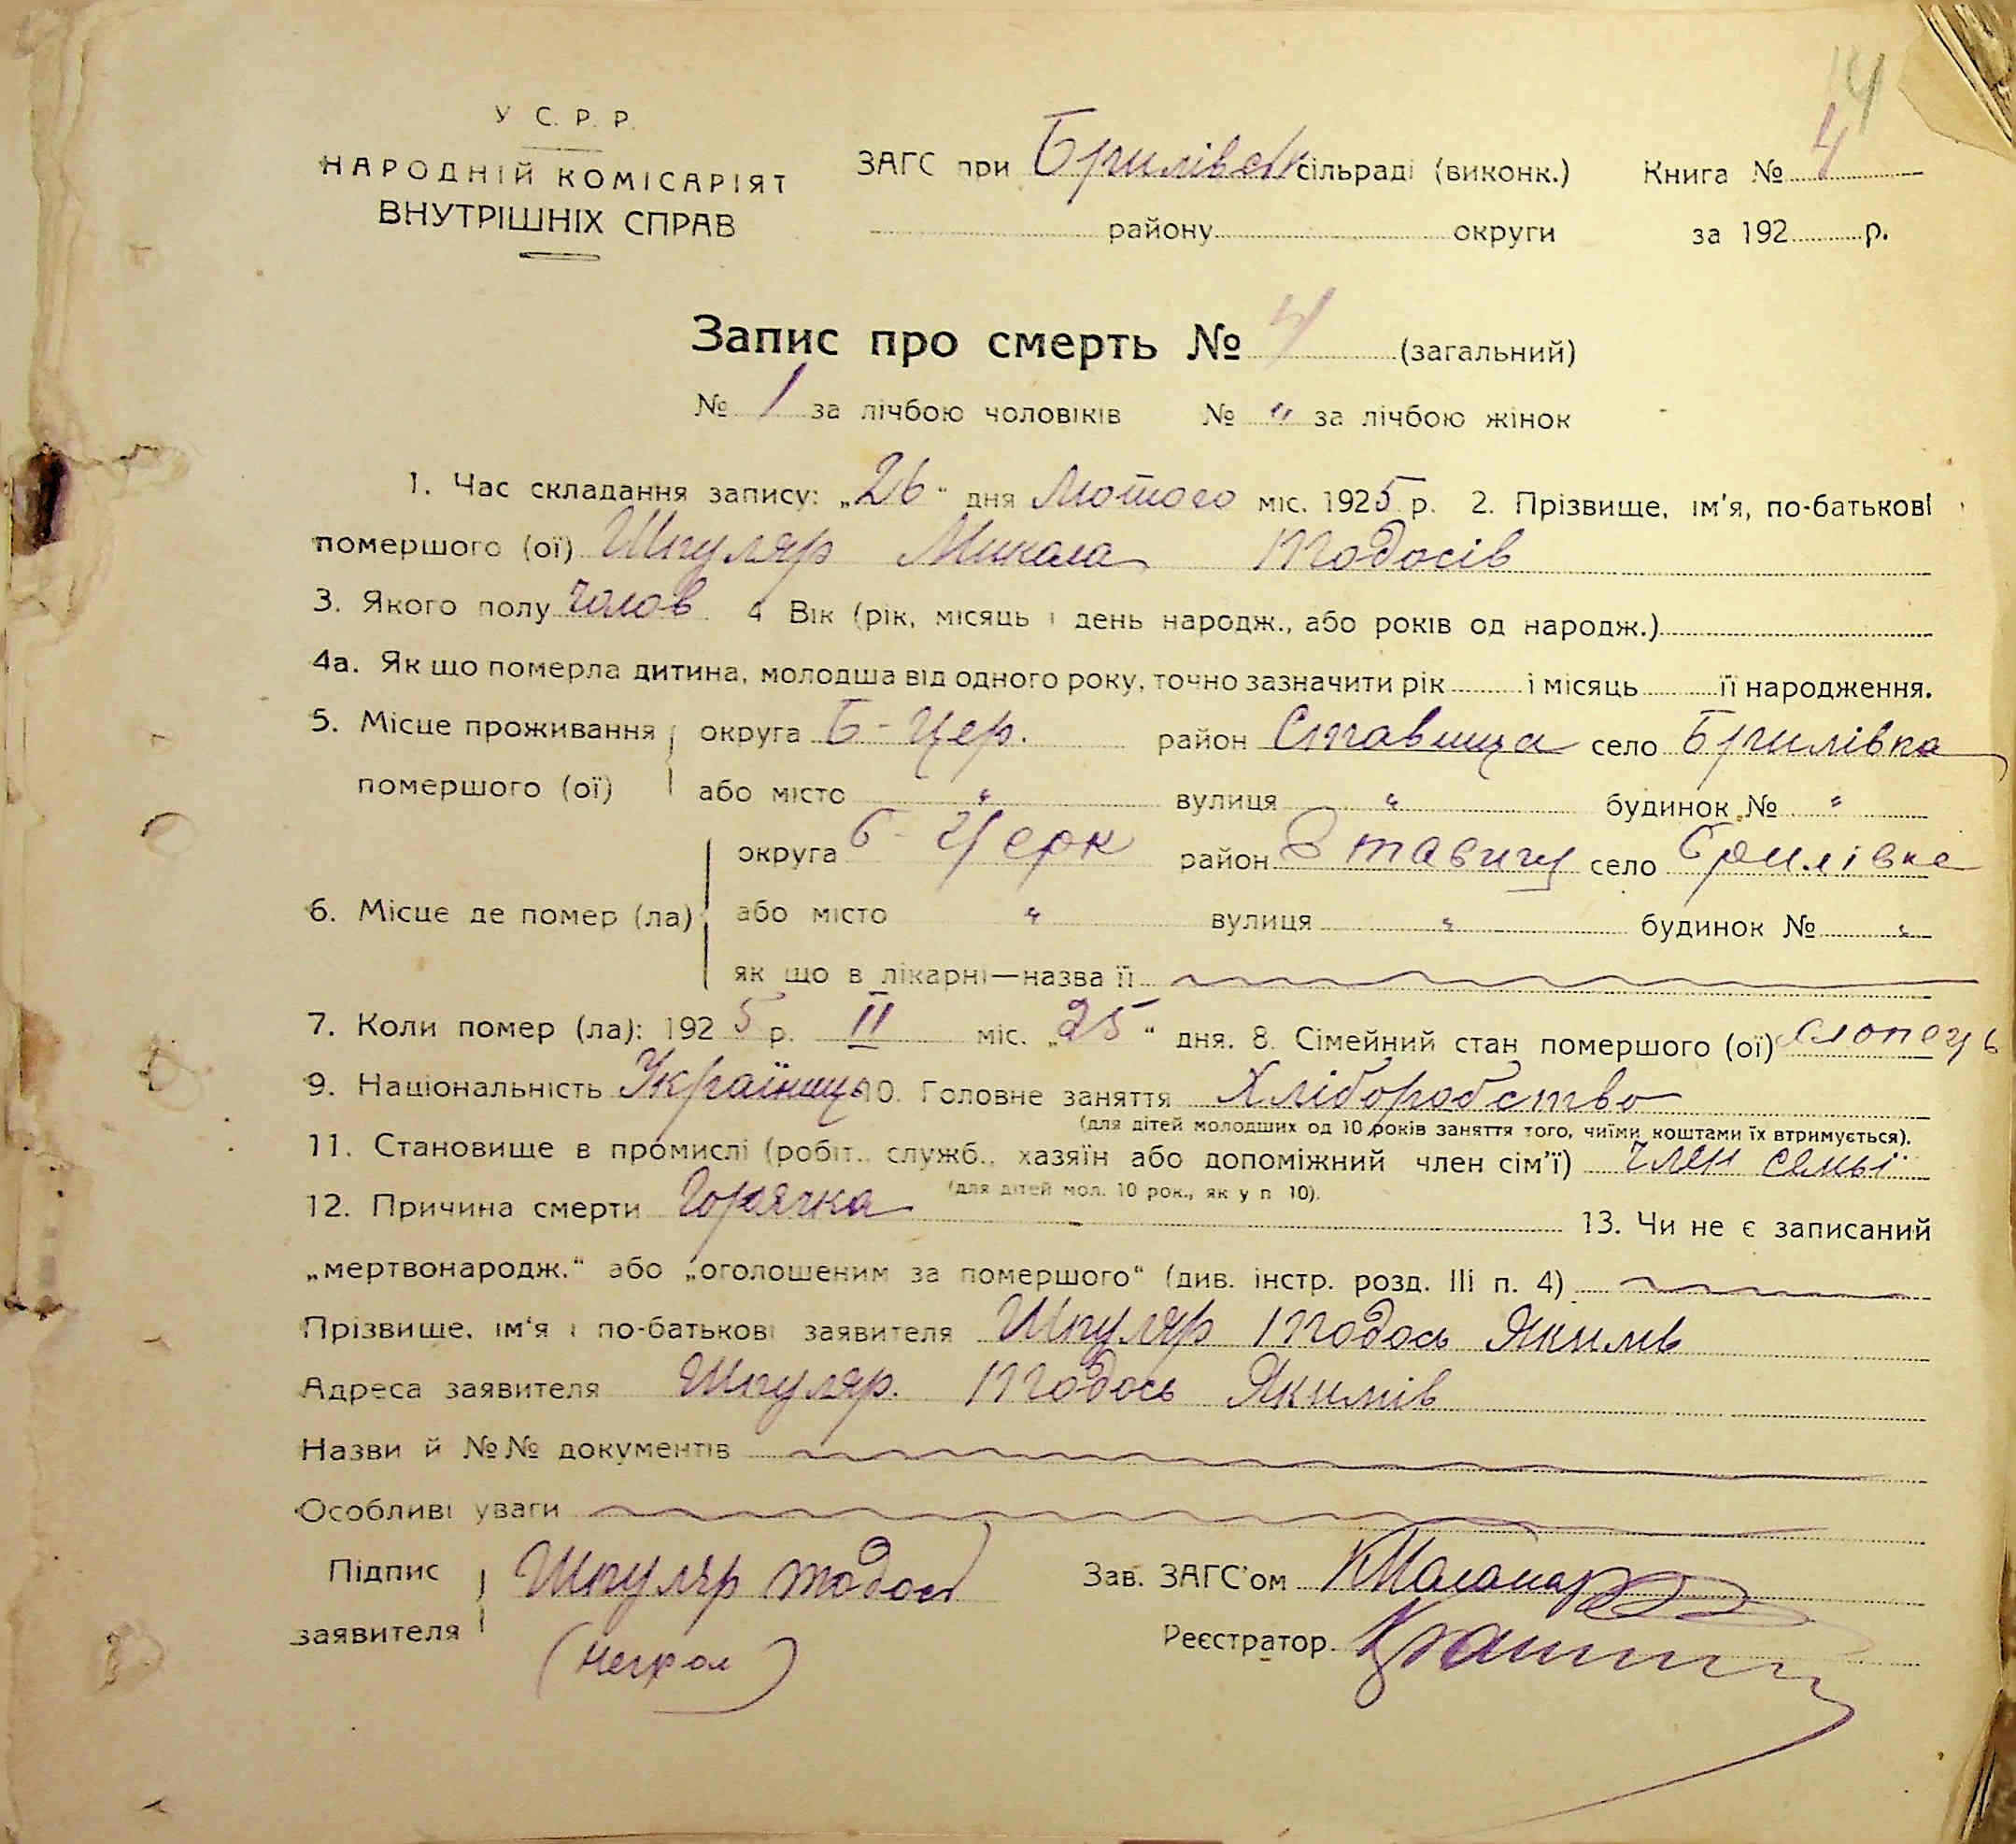 14
У С. Р. Р.
НАРОДНІЙ КОМІСАРІЯТ
ВНУТРІШНІХ СПРАВ
ЗАГС при Брилівськ сільраді (виконк.) Книга № 4
району округи за 192 р.
Запис про смерть № 4 (загальний)
№ 1 за лічбою чоловіків № " за лічбою жінок
1. Час складання запису: „26“ дня Лютого міс. 1925 р. 2. Прізвище, ім'я, по-батькові
помершого (ої) Шпуляр Микола Тодосів
3. Якого полу чолов 4 Вік (рік, місяць і день народж., або років од народж.)
4а. Як що померла дитина, молодша від одного року, точно зазначити рік і місяць її народження.
5. Місце проживання округа Б-Цер. район Ставища село Брилівка
помершого (ої) або місто " вулиця " будинок № "
округа Б-Церк район Ставищ село Брилівка
6. Місце де помер (ла) або місто " вулиця " будинок № "
як що в лікарні—назва її
7. Коли помер (ла): 1925 р. II міс. „25“ дня. 8. Сімейний стан помершого (ої) хлопець
9. Національність Українець 10. Головне заняття Хліборобство
(для дітей молодших од 10 років заняття того, чиїми коштами їх втримується).
11. Становище в промислі (робіт., служб., хазяїн або допоміжний член сім'ї) член семьї
(для дітей мол. 10 рок., як у п 10).
12. Причина смерти Горячка 13. Чи не є записаний
„мертвонародж.“ або „оголошеним за помершого“ (див. інстр. розд. III п. 4)
Прізвище, ім'я і по-батькові заявителя Шпуляр Тодось Якимів
Адреса заявителя Шпуляр. Тодось Якимів
Назви й №№ документів
Особливі уваги
Підпис Шпуляр Тодось Зав. ЗАГС'ом
заявителя (неграм) Реєстратор